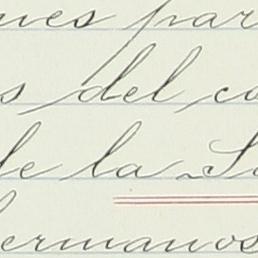 ues par
s del co
de la So
hermanos